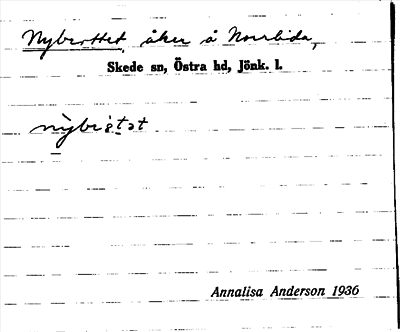 Nybrottet, åker å Norrlida,
Skede sn, Östra hd, Jönk. l.
Annalisa Anderson 1936